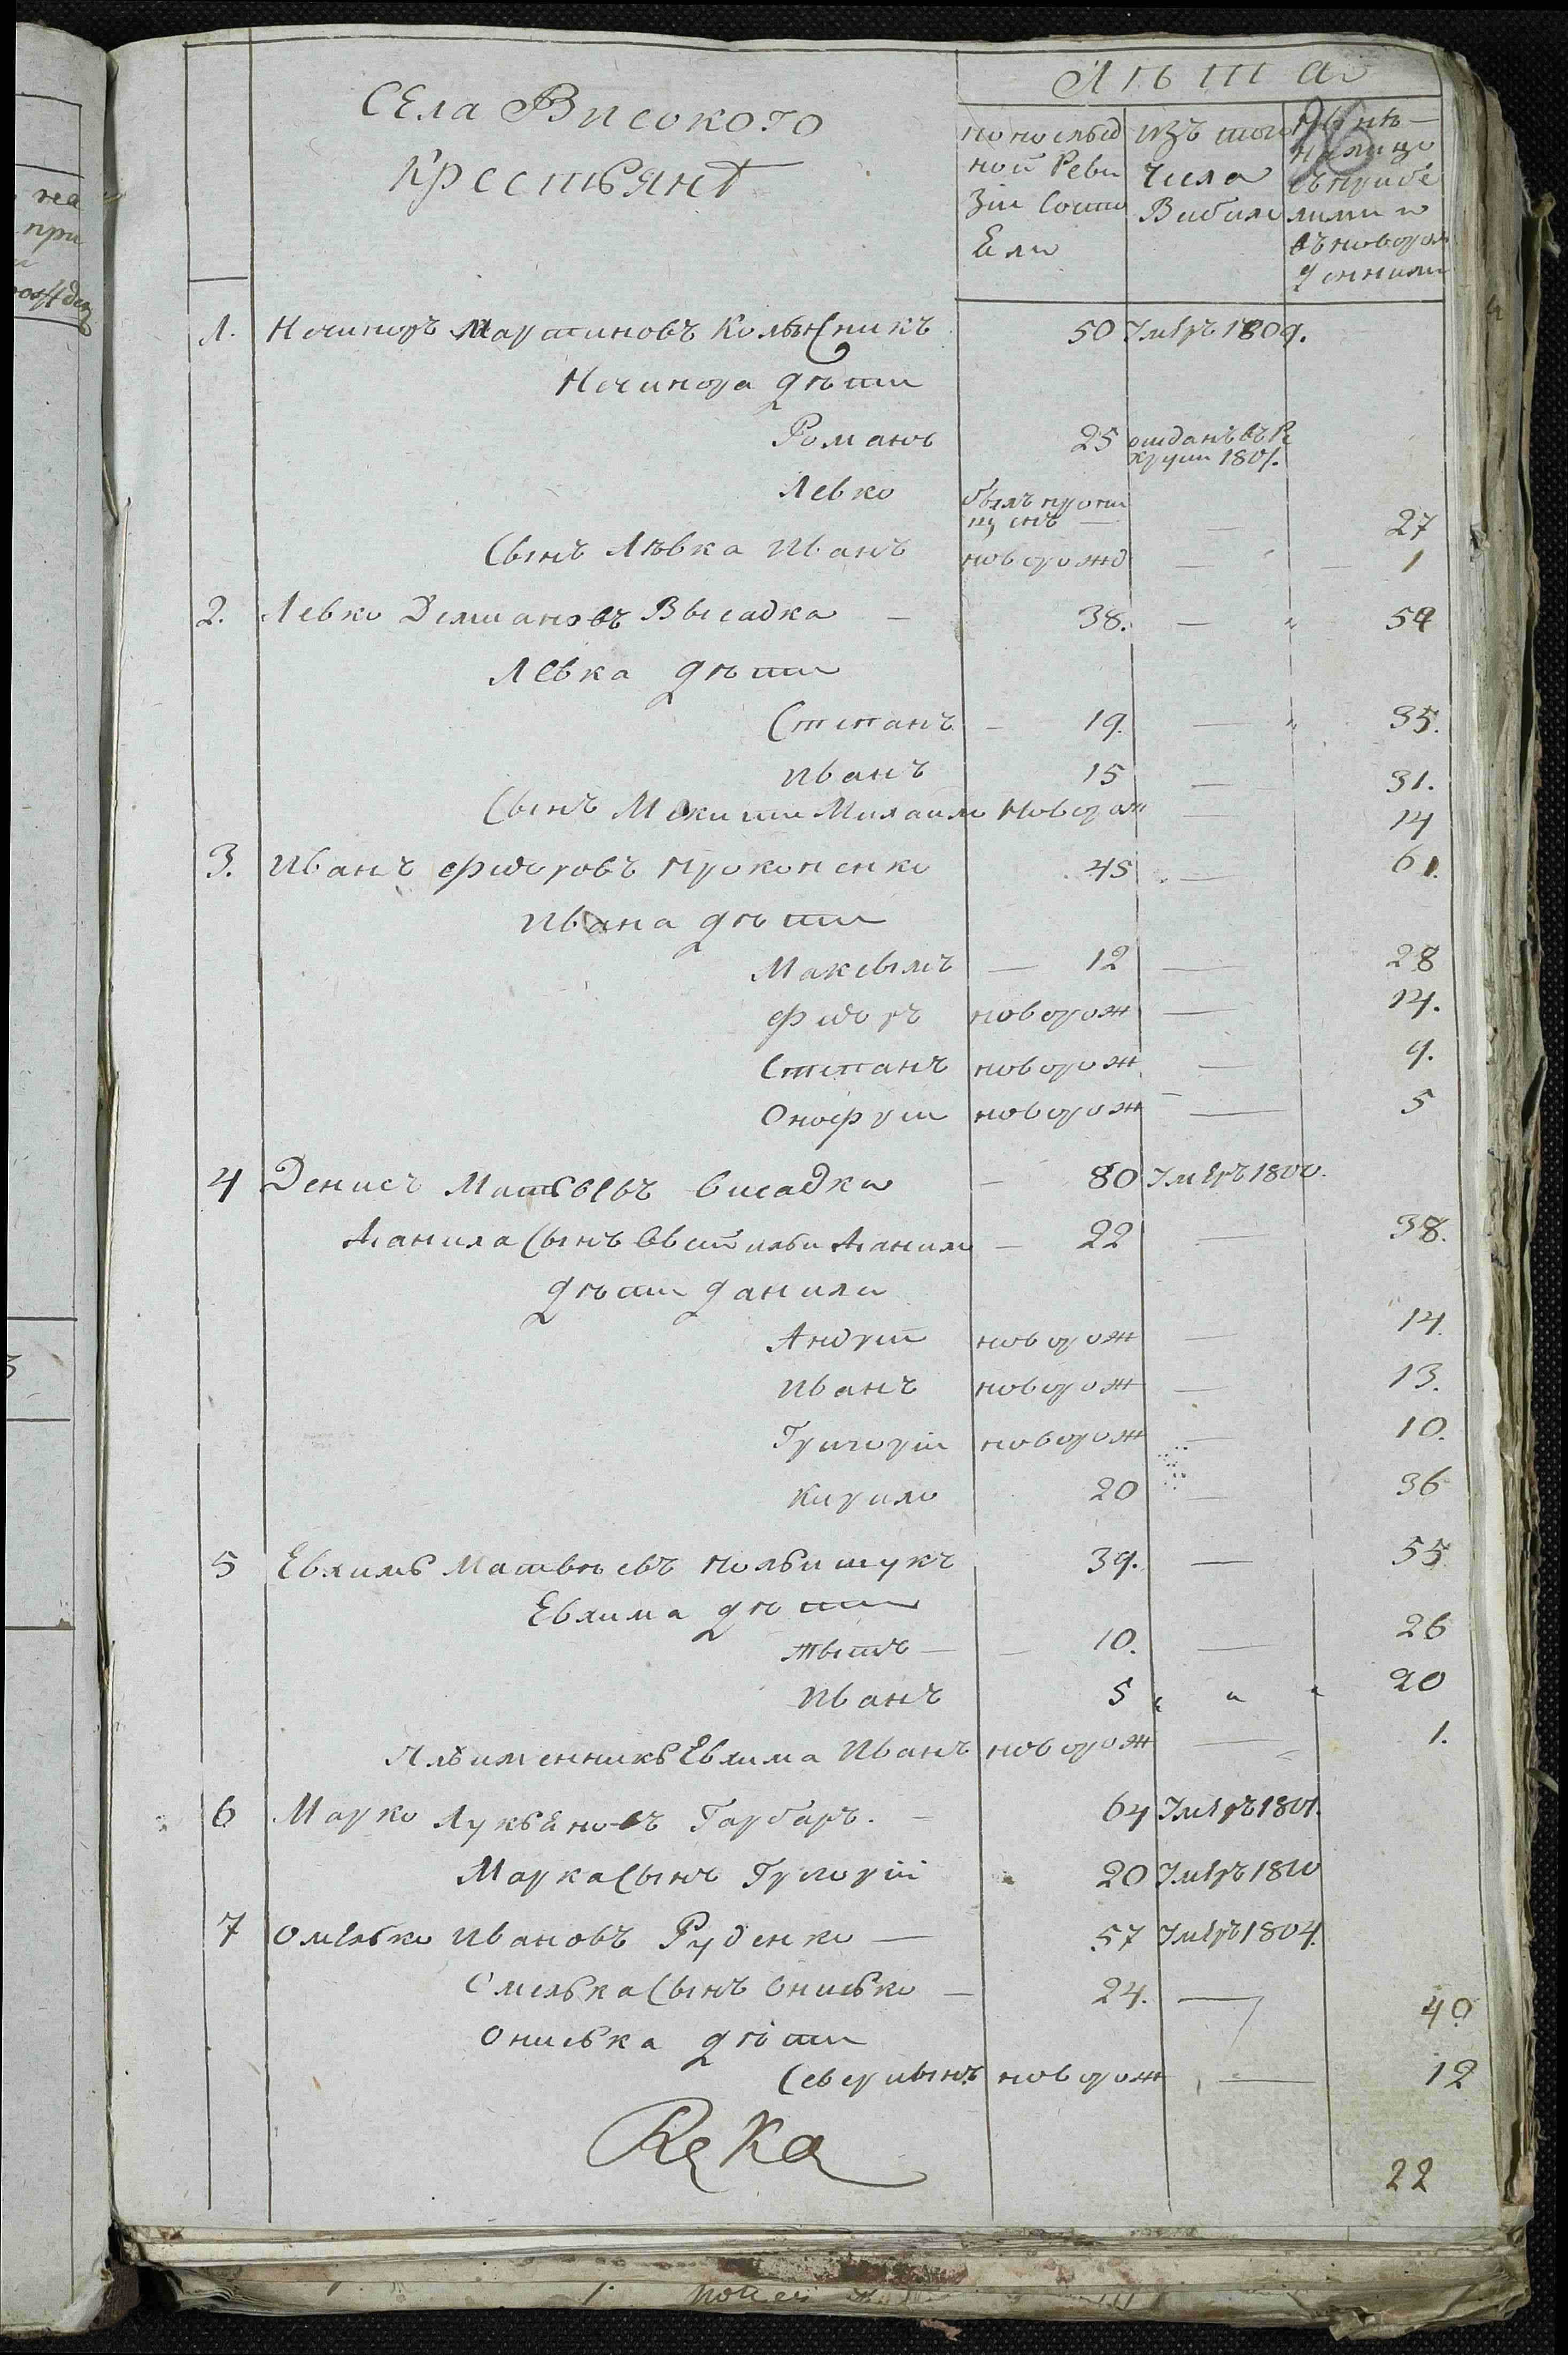 Села Високого
Крестьянъ
Лѣта
по послѣд ной Реви зіи Состо Ели
изъ того числа Вибили
Нынѣ на лицо съ прибе лими и съ новорож денними
1. Ничипоръ Мартиновъ 50 Умѣръ 1809.
Ничипора дѣти
Романъ 25 отданъ въ Ре крути 1801.
Левко былъ пропи щенъ — — 27
Сынъ Лѣвка Иванъ новорожд — — 1
2. Левко Демиановъ Высадка — 38. — 54
Левка дѣти
Степанъ — 19. — 35.
Иванъ 15 — 31.
Сынъ Микити Михаило Новорож — 14
3. Иванъ Фидоровъ Прокопенко 45 — 61.
Ивана дѣти
Максымъ — 12 — 28
Фидоръ новорож — 14.
Степанъ новорож — 9.
Онофрій новорож — 5
4 Денисъ Матвѣевъ Висадка — 80 Умеръ 1800.
Данила Сынъ Данило — 22 — 38.
дѣти данили
Андрій новорож — 14.
Иванъ новорож — 13.
Григорій новорож — 10.
Кирило 20 — 36
5 Евхимъ Матвѣевъ Польищукъ 39. — 55
Евхима дѣти
— 10. — 26
Иванъ 5 „ „ „ 20
Племенникъ Евхима Иванъ новорож — 1.
6 Марко Лукьяновъ Гарбаръ. — 64 Умеръ 1801.
Марка Сынъ Григорій 20 Умеръ 1810
7 Омелько Ивановъ Руденко — 57 Умеръ 1804.
Омелька Сынъ Онисько — 24. — 40
Ониська дѣти
Северинъ новорож — 12
22